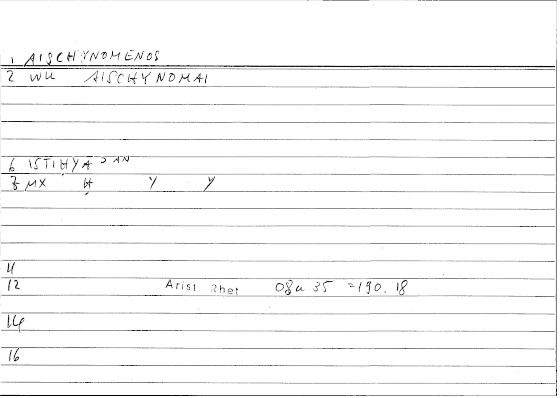 1 AISCHYNOMENOS
2 WU AISCHYNOMAI
6 ISTIḤYĀʾAN
7 MX Ḥ Y Y
11
12 Arist Rhet 08a 35 =190.18
14
16